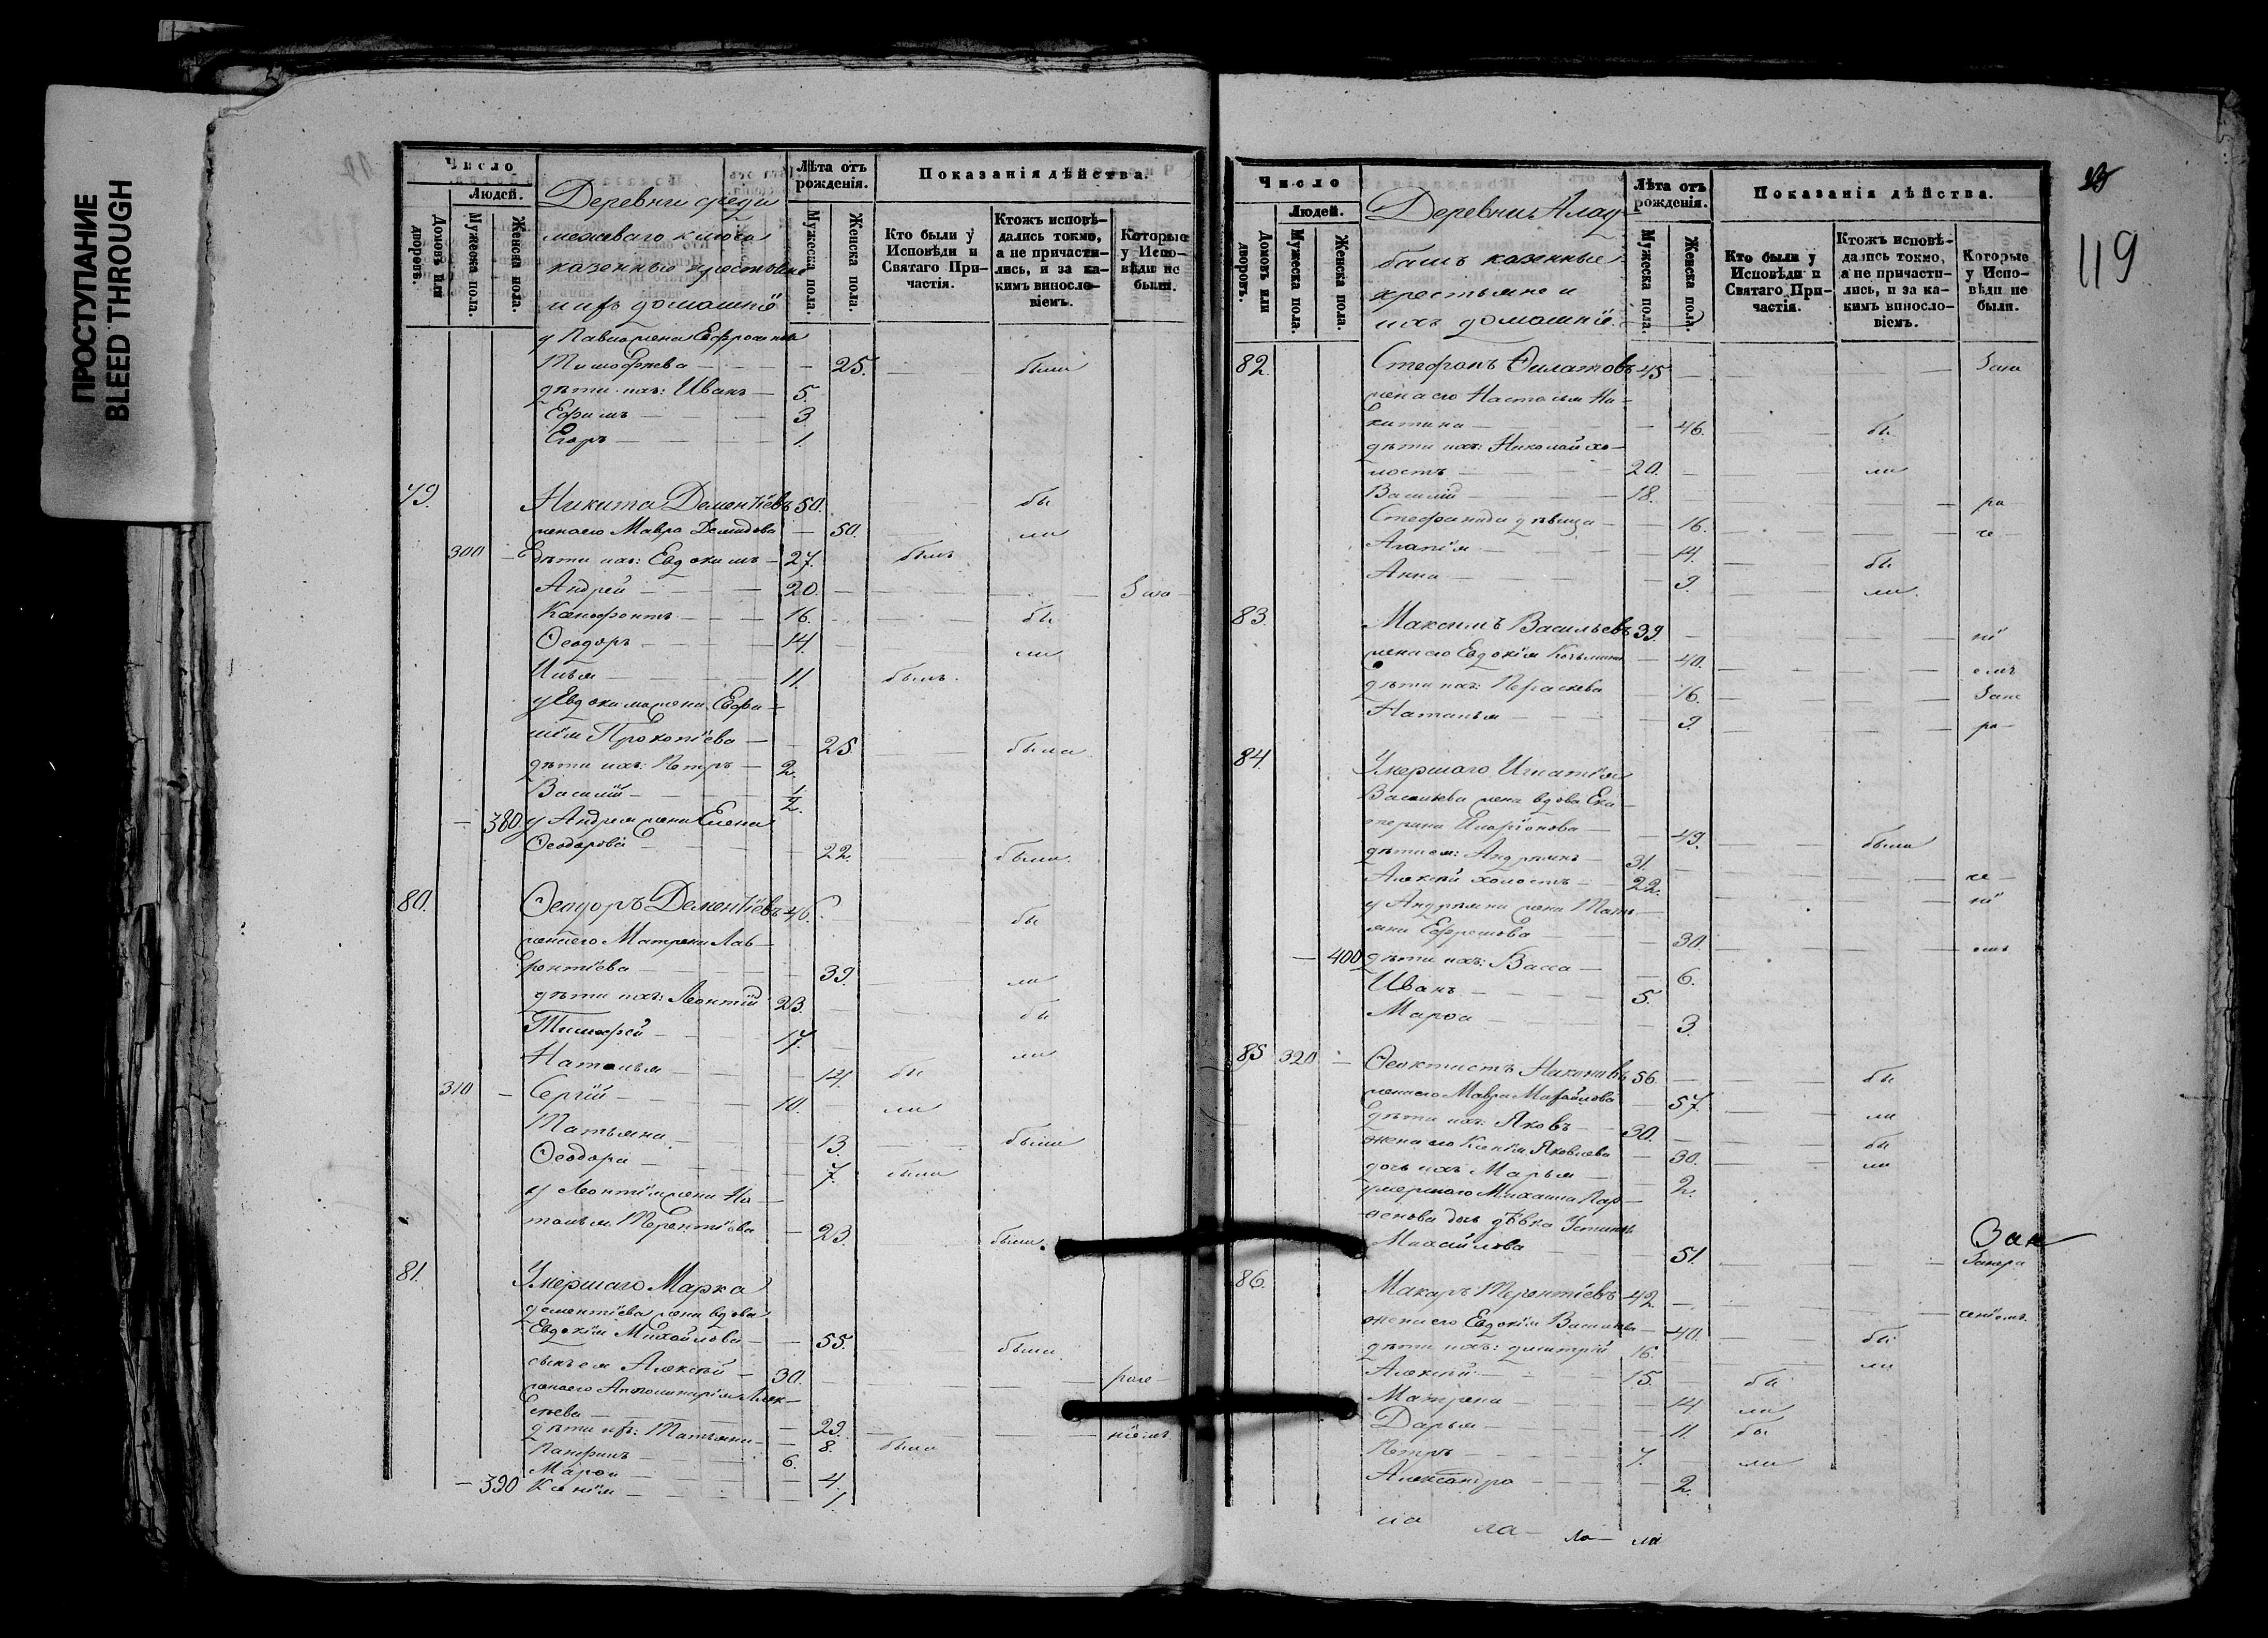 ПРОСТУПАНИЕ
BLEED THROUGH
Число
Людей.
Домовъ или дворовъ.
Мужеска пола.
Женска пола.
Деревни среди
казенные крестьяне
и ихъ домашніе
Лѣта отъ рожденія.
Мужеска пола.
Женска пола.
Показанія дѣйства.
Кто были у Исповѣди и Святаго При-
частія.
Ктожъ исповѣ-
дались токмо,
а не причасти-
лись, и за ка-
кимъ виносло-
віемъ.
Которые
у Испо-
вѣди не
были.
Тимофеева — 25. была
дѣти ихъ: Иванъ — 5.
Ефимъ — 3
Егоръ — 1.
79. Никита Дементіевъ 50. бы
жена его Мавра Демидова — 50. ли
300 — дѣти ихъ: Евдокимъ — 27. былъ
Андрей — 20. Зано
Ксенофонтъ — 16. бы
Ѳеодоръ — 14. ли
Илья — 11. былъ
у Евдокима жена Евфи-
мія Прокопіева — 25 была
дѣти ихъ: Петръ — 2.
Василій — 1/2.
— 380. у Андрея жена Елена
Ѳеодорова — 22. была
80. Ѳеодоръ Дементіевъ 46. бы
жена его Матрена Лав-
рентіева — 39. ли
дѣти ихъ: Леонтій 23. бы
Тимофей — 17. ли
Наталья — 14. бы
310 — Сергій — 10. ли
Татьяна — 13. была
Ѳеодора — 7. была
у Леонтія жена На-
талья Терентіева — 23. была
81. Умершаго Марка
Дементіева жена вдова
Евдокія Михайлова — 55. была
сынъ ея Алексѣй — 30. раче
жена его Аполинарія Алек-
сѣева — 29. ніемъ
дѣти ихъ: Татьяна — 8. была
Панфилъ — 6.
Марѳа — 4.
— 390 Ксенія — 1.
119
Число
Людей.
Домовъ или дворовъ.
Мужеска пола.
Женска пола.
Деревни Алад-
башъ казенные
крестьяне и
ихъ домашніе.
Лѣта отъ рожденія.
Мужеска пола.
Женска пола.
Показанія дѣйства.
Кто были у
Исповѣди и
Святаго При-
частія.
Ктожъ исповѣ-
дались токмо,
а не причасти-
лись, и за ка-
кимъ виносло-
віемъ.
Которые
у Испо-
вѣди не
были.
82. Стефанъ Филатовъ 45 Зана
жена его Настасья Ни-
китина — 46. бы
дѣти ихъ: Николай хо-
лостъ — 20. ли
Василій — 18. ра
Стефанида дѣвица — 16. че
Агапія — 14. бы
Анна — 9. ли
83. Максимъ Васильевъ 39. ні
жена его Евдокія Козьмина — 40. емъ
дѣти ихъ: Параскева — 16. Зана
Наталья — 9. ра
84. Умершаго Игнатія
Васильева жена вдова Ека-
терина Иларіонова — 49. была
дѣти ея: Андреянъ — 31. че
Алексѣй холостъ — 22. ні
у Андреяна жена Тать-
яна Ефремова — 30. емъ
— 400 дѣти ихъ: Васса — 6.
Иванъ — 5.
Марѳа — 3.
85 320 — Ѳеоктистъ Никоновъ 56. бы
жена его Мавра Михайлова — 57. ли
дѣти ихъ: Яковъ — 30. бы
жена его Ксенія Яковлева — 30. ли
дочь ихъ Марья — 2.
умершаго Михаила Пар-
ѳенова дочь дѣвка Устинья
Михайлова — 51. Зан
86. Макаръ Терентіевъ 42. ченіемъ
жена его Евдокія Васильева — 40. бы
дѣти ихъ: Дмитрій 16. ли
Алексѣй — 15. бы
Матрена — 14 ли
Дарья — 11. бы
Петръ — 7. ли
Александра — 2.